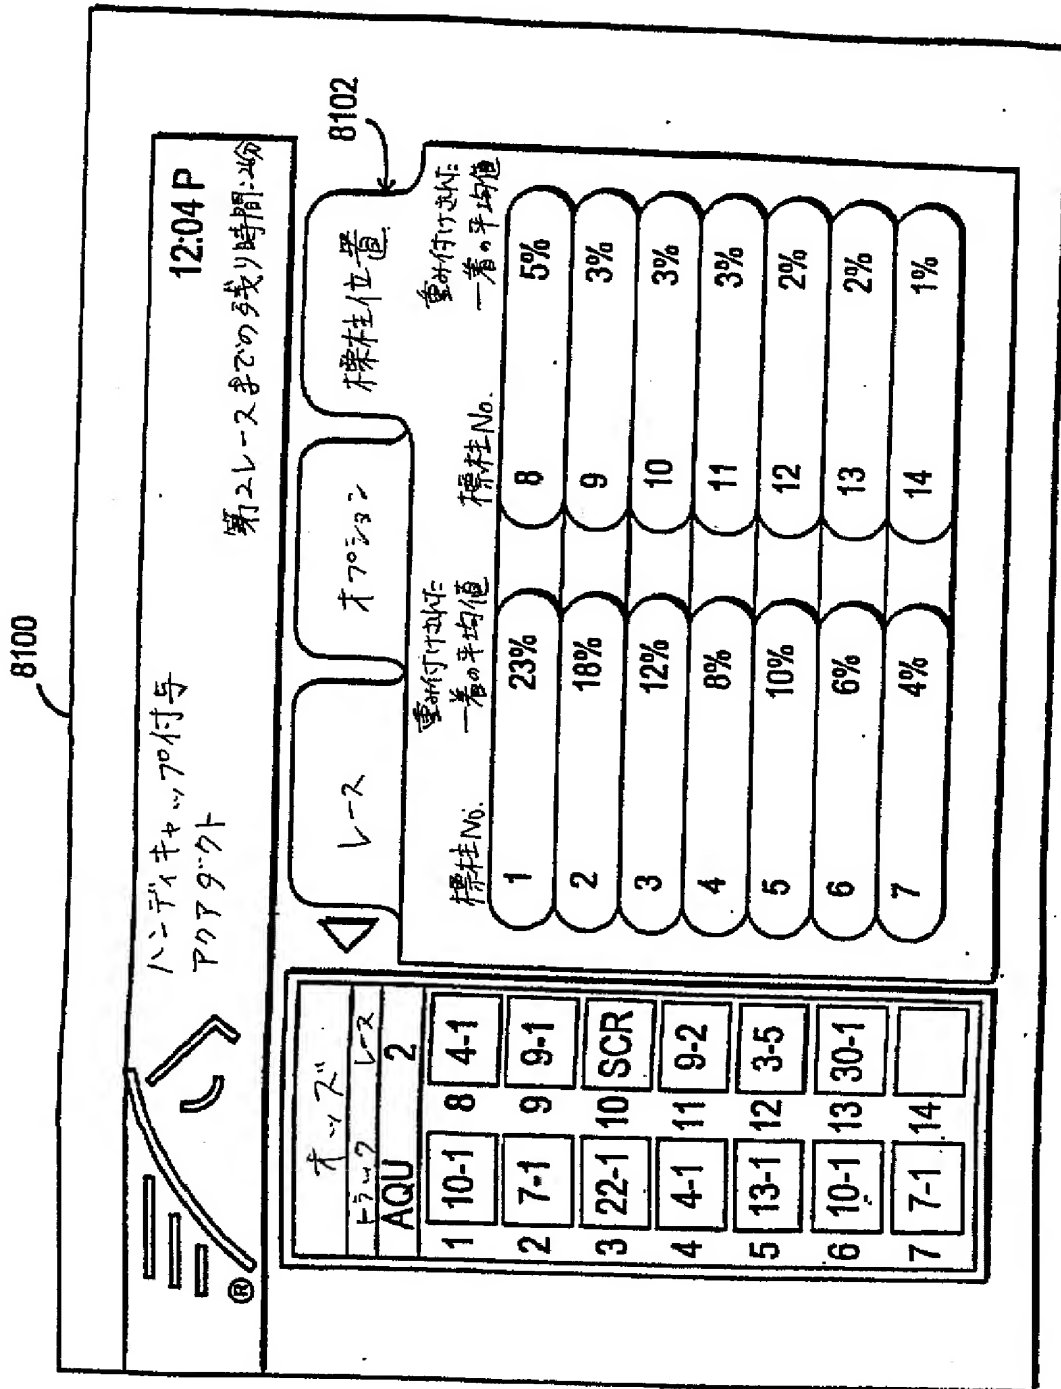 8100
ハンディキャップ付与
アクアダクト
12:04 P
第2レースまでの残り時間:
®
オッズ
トラック レース
AQU 2
1 10-1 8 4-1
2 7-1 9 9-1
3 22-1 10 SCR
4 4-1 11 9-2
5 13-1 12 3-5
6 10-1 13 30-1
7 7-1 14
レース
オプション
標柱位置
8102
標柱No. 重み付けされた 標柱No. 重み付けされた
一着の平均値 一着の平均値
1 23% 8 5%
2 18% 9 3%
3 12% 10 3%
4 8% 11 3%
5 10% 12 2%
6 6% 13 2%
7 4% 14 1%